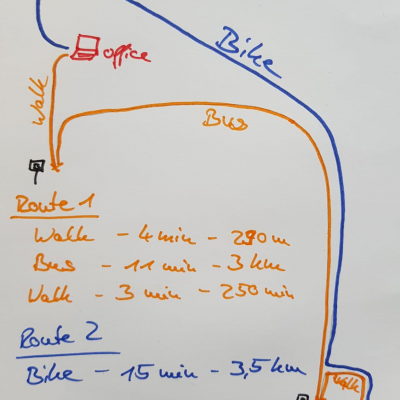 Bike
office
Walk
Bus
Route 1
Walk - 4 min - 290 m
Bus - 11 min - 3 km
Walk - 3 min - 250 min
Route 2
Bike - 15 min - 3,5 km
Walk